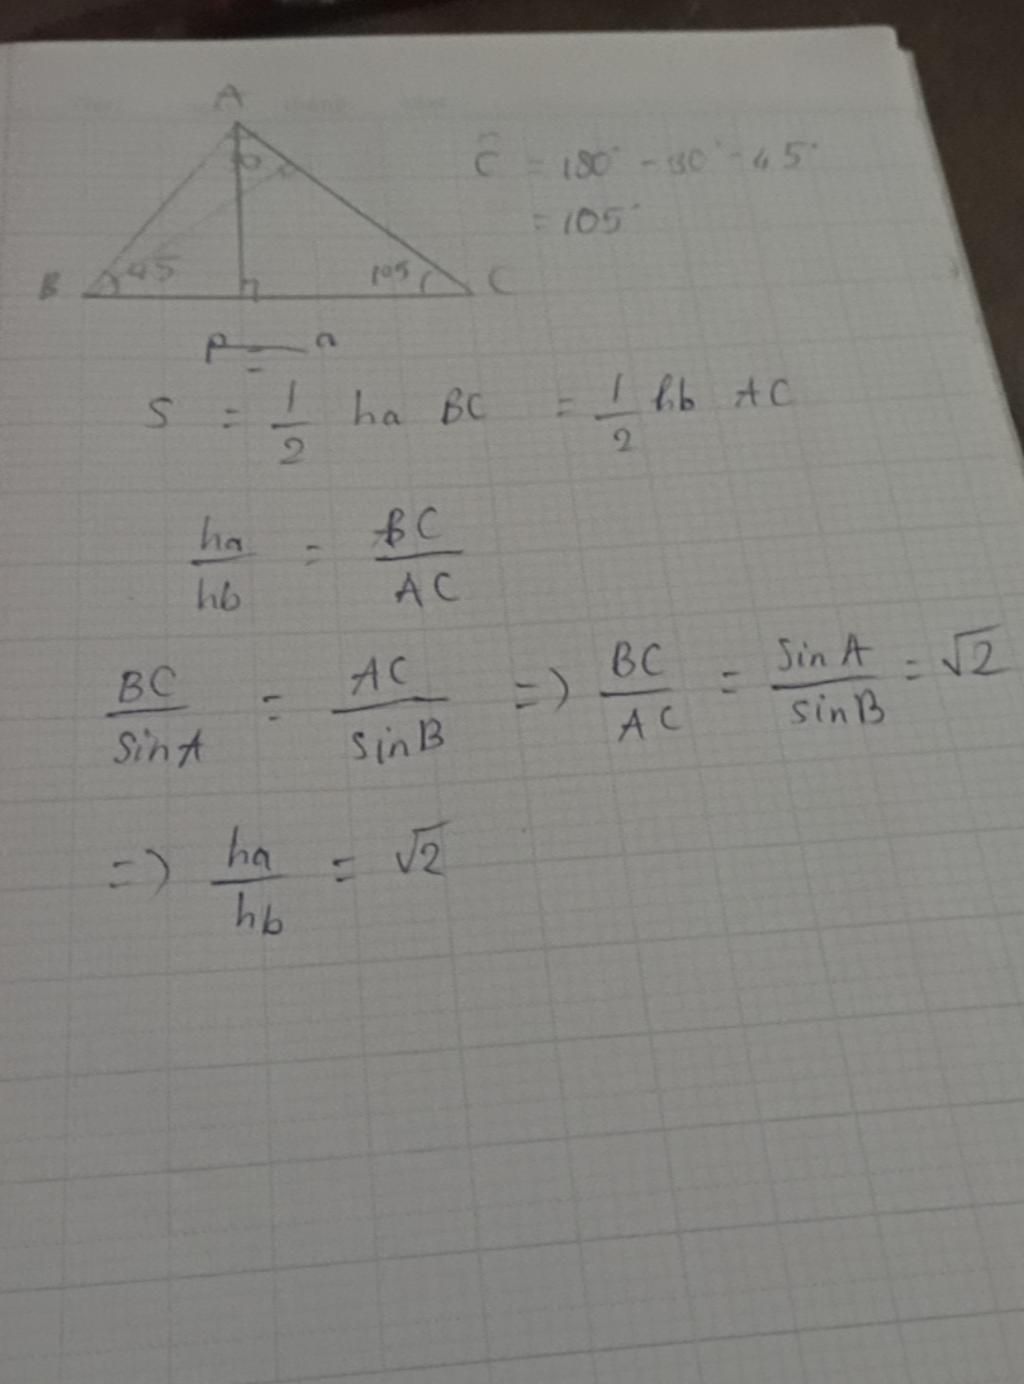 A
Ĉ = 180° - 30° - 45°
= 105°
B 45 105 C
S = 1/2 ha BC = 1/2 hb AC
ha/hb = BC/AC
BC/SinA = AC/sinB => BC/AC = SinA/sinB = √2
=> ha/hb = √2